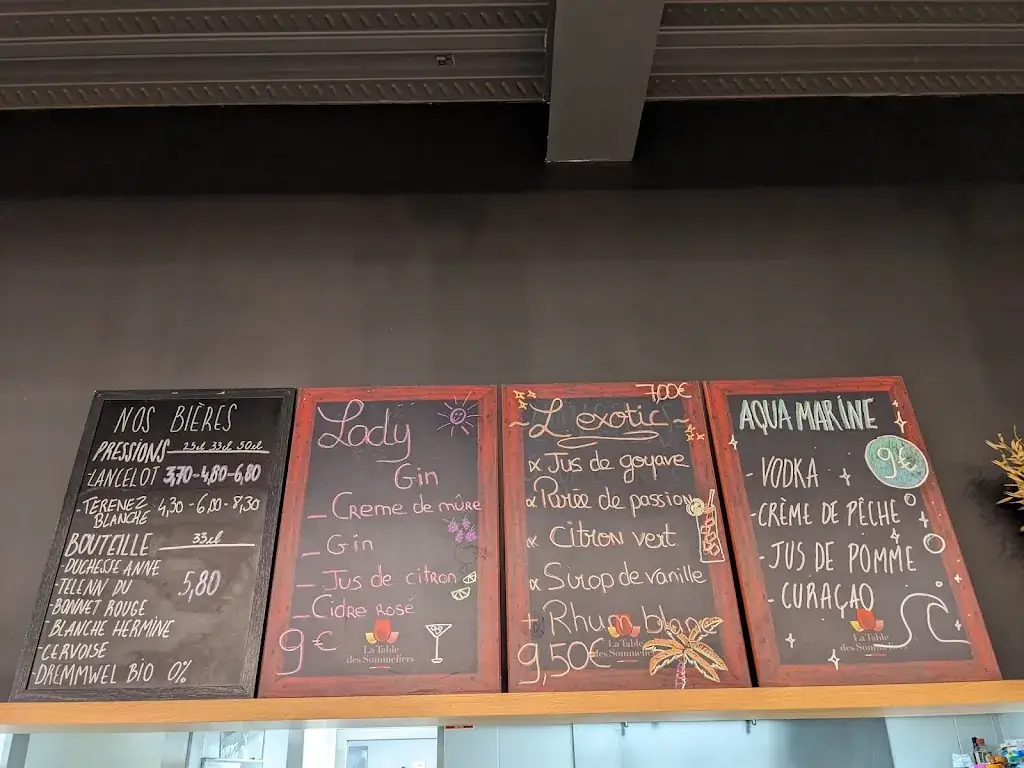 NOS BIÈRES
PRESSIONS 25cl 33cl 50cl
-LANCELOT 3,70-4,80-6,80
-TERENEZ BLANCHE 4,30-6,00-8,30
BOUTEILLE 33cl
-DUCHESSE ANNE
-TELENN DU
-BONNET ROUGE
-BLANCHE HERMINE
-CERVOISE
DREMMWEL BIO 0%
5,80
Lady
Gin
_ Creme de mûre
_ Gin
_ Jus de citron
_ Cidre Rosé
9€
La Table
des Sommeliers
7,00€
~ L'exotic ~
Jus de goyave
Purée de passion
Citron vert
Sirop de vanille
+ Rhum blanc
9,50€
La Table
des Sommeliers
AQUA MARINE
9€
- VODKA
- CRÈME DE PÊCHE
- JUS DE POMME
- CURAÇAO
La Table
des Sommeliers